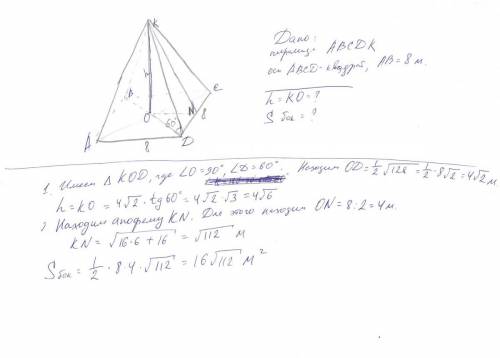 K
Дано:
пирамида ABCDK
осн ABCD-квадрат, AB = 8 м.
h
h = KO = ?
S бок = ?
B
C
N
O
60°
8
A
8
D
1. Имеем △ KOD, где ∠O = 90°, ∠D = 60°. Находим OD = 1/2 √128 = 1/2 · 8√2 = 4√2 м.
h = KO = 4√2 · tg 60° = 4√2 · √3 = 4√6
2. Находим апофему KN. Для этого находим ON = 8 : 2 = 4 м.
KN = √16·6 + 16 = √112 м
S бок = 1/2 · 8 · 4 · √112 = 16√112 м²